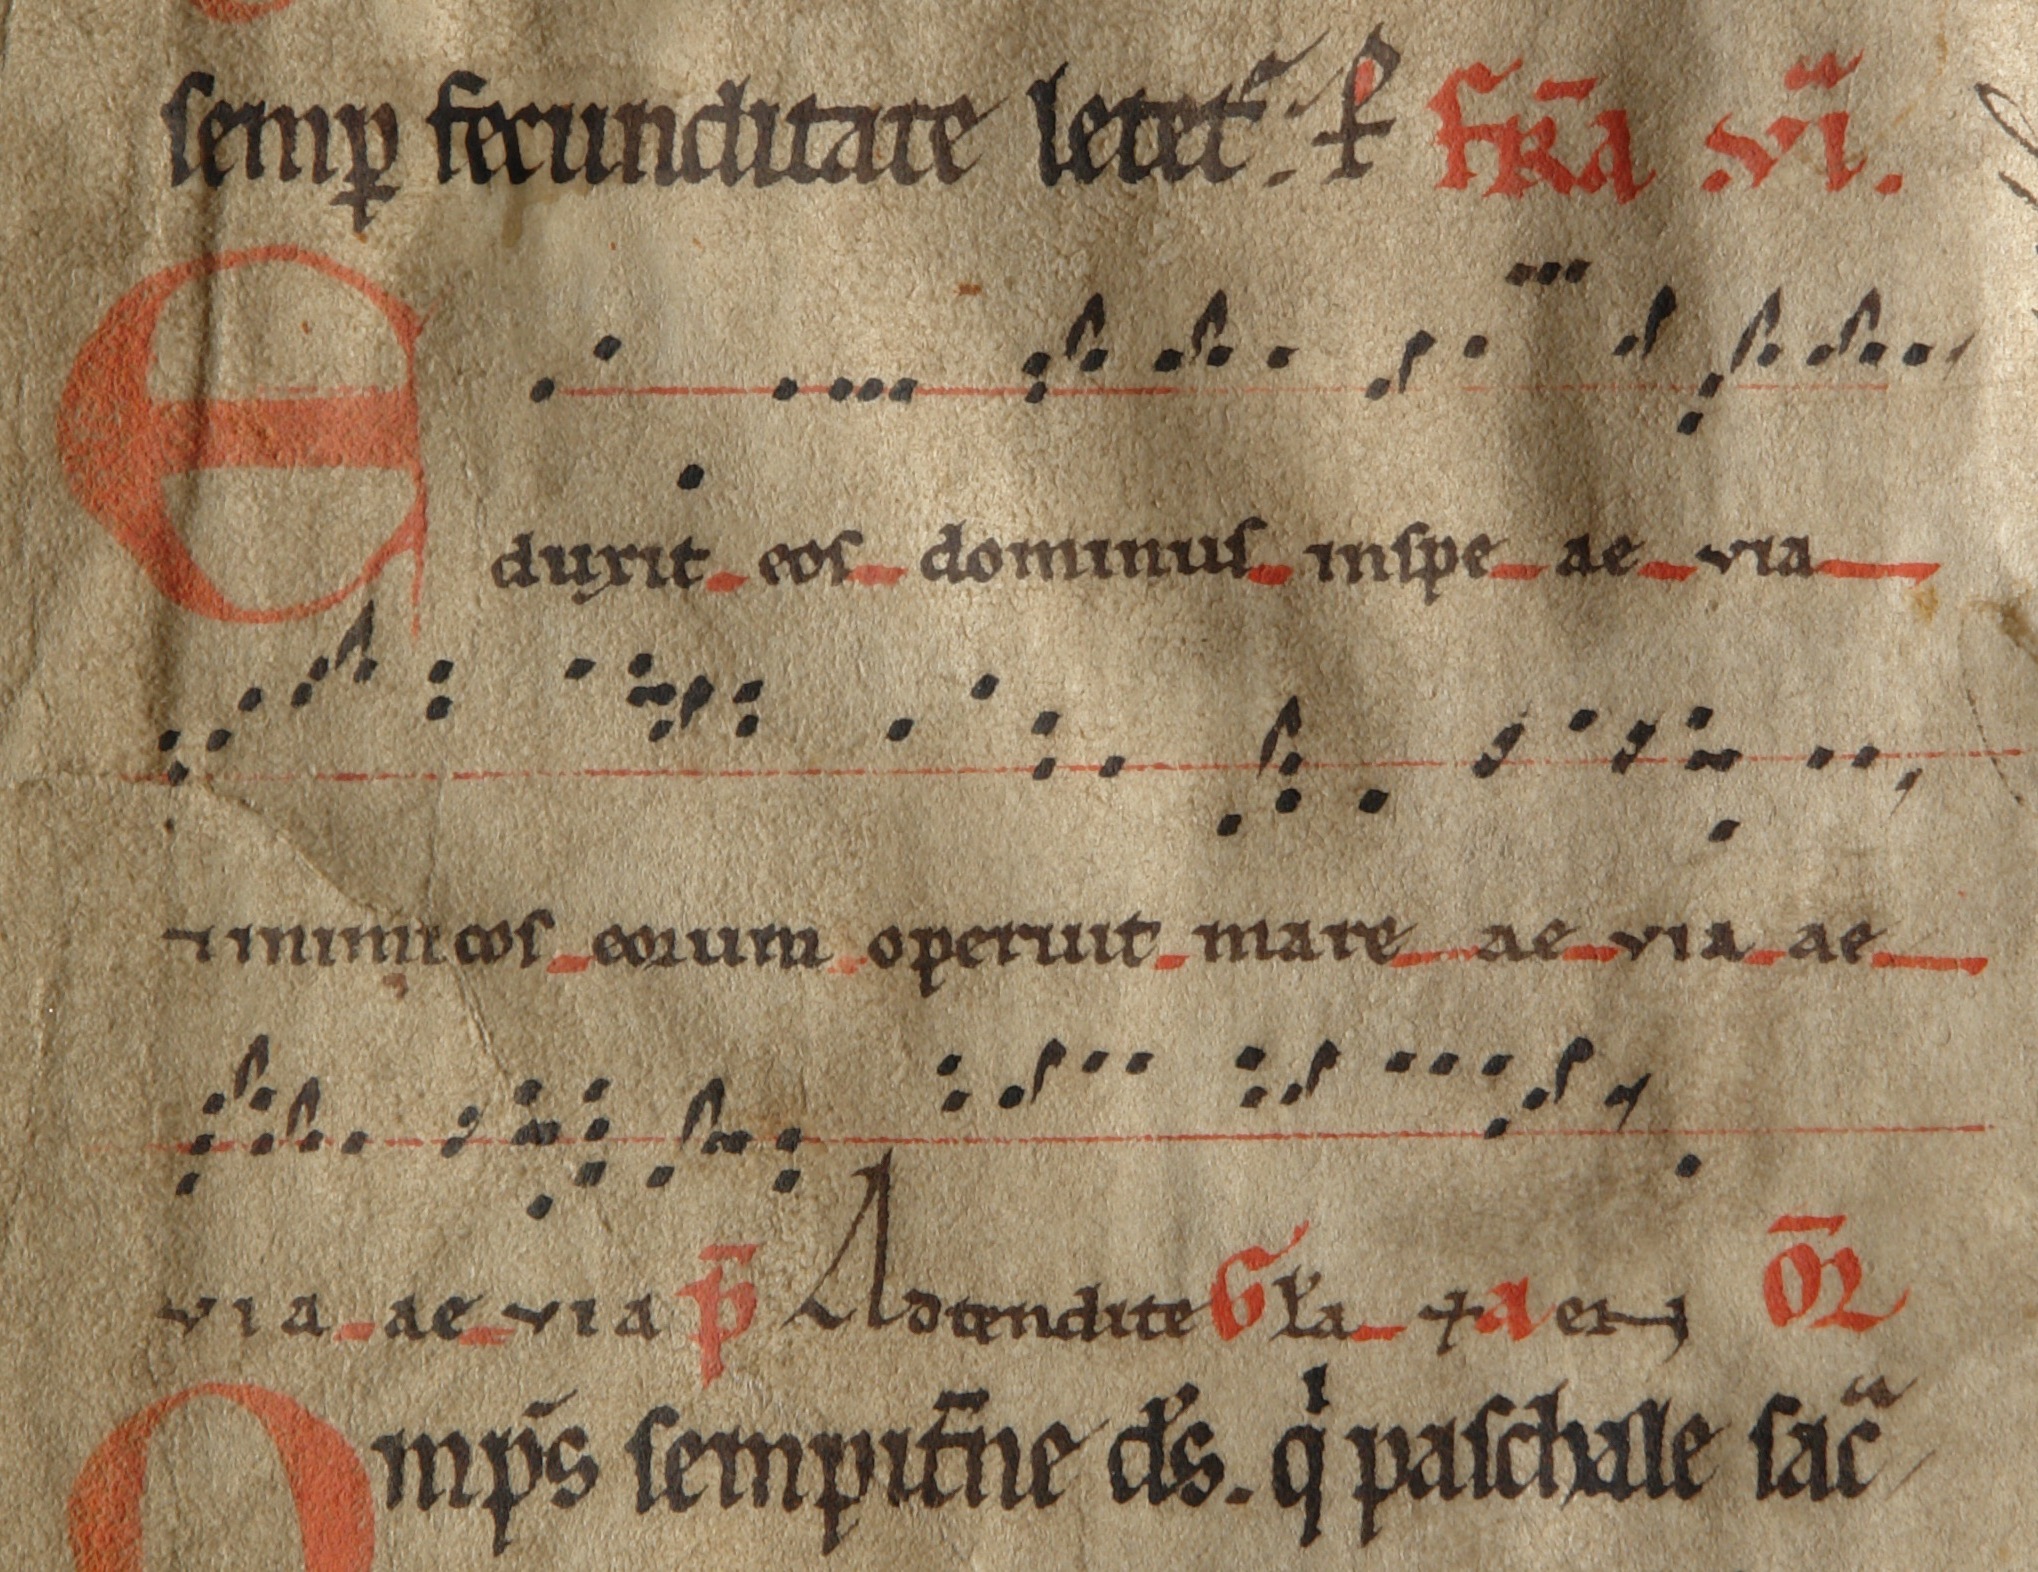 semꝑ fecunditate letet᷑. ꝑ FRĀ .VIᵃ.
Eduxit eos dominus inspe ae via
⁊ inimicos eorum operuit mare ae via ae
via ae via p̄ Adtendite Gła ✝ a
Omp̄s sempit̄ne ds̄. qⁱ paschale sac̄